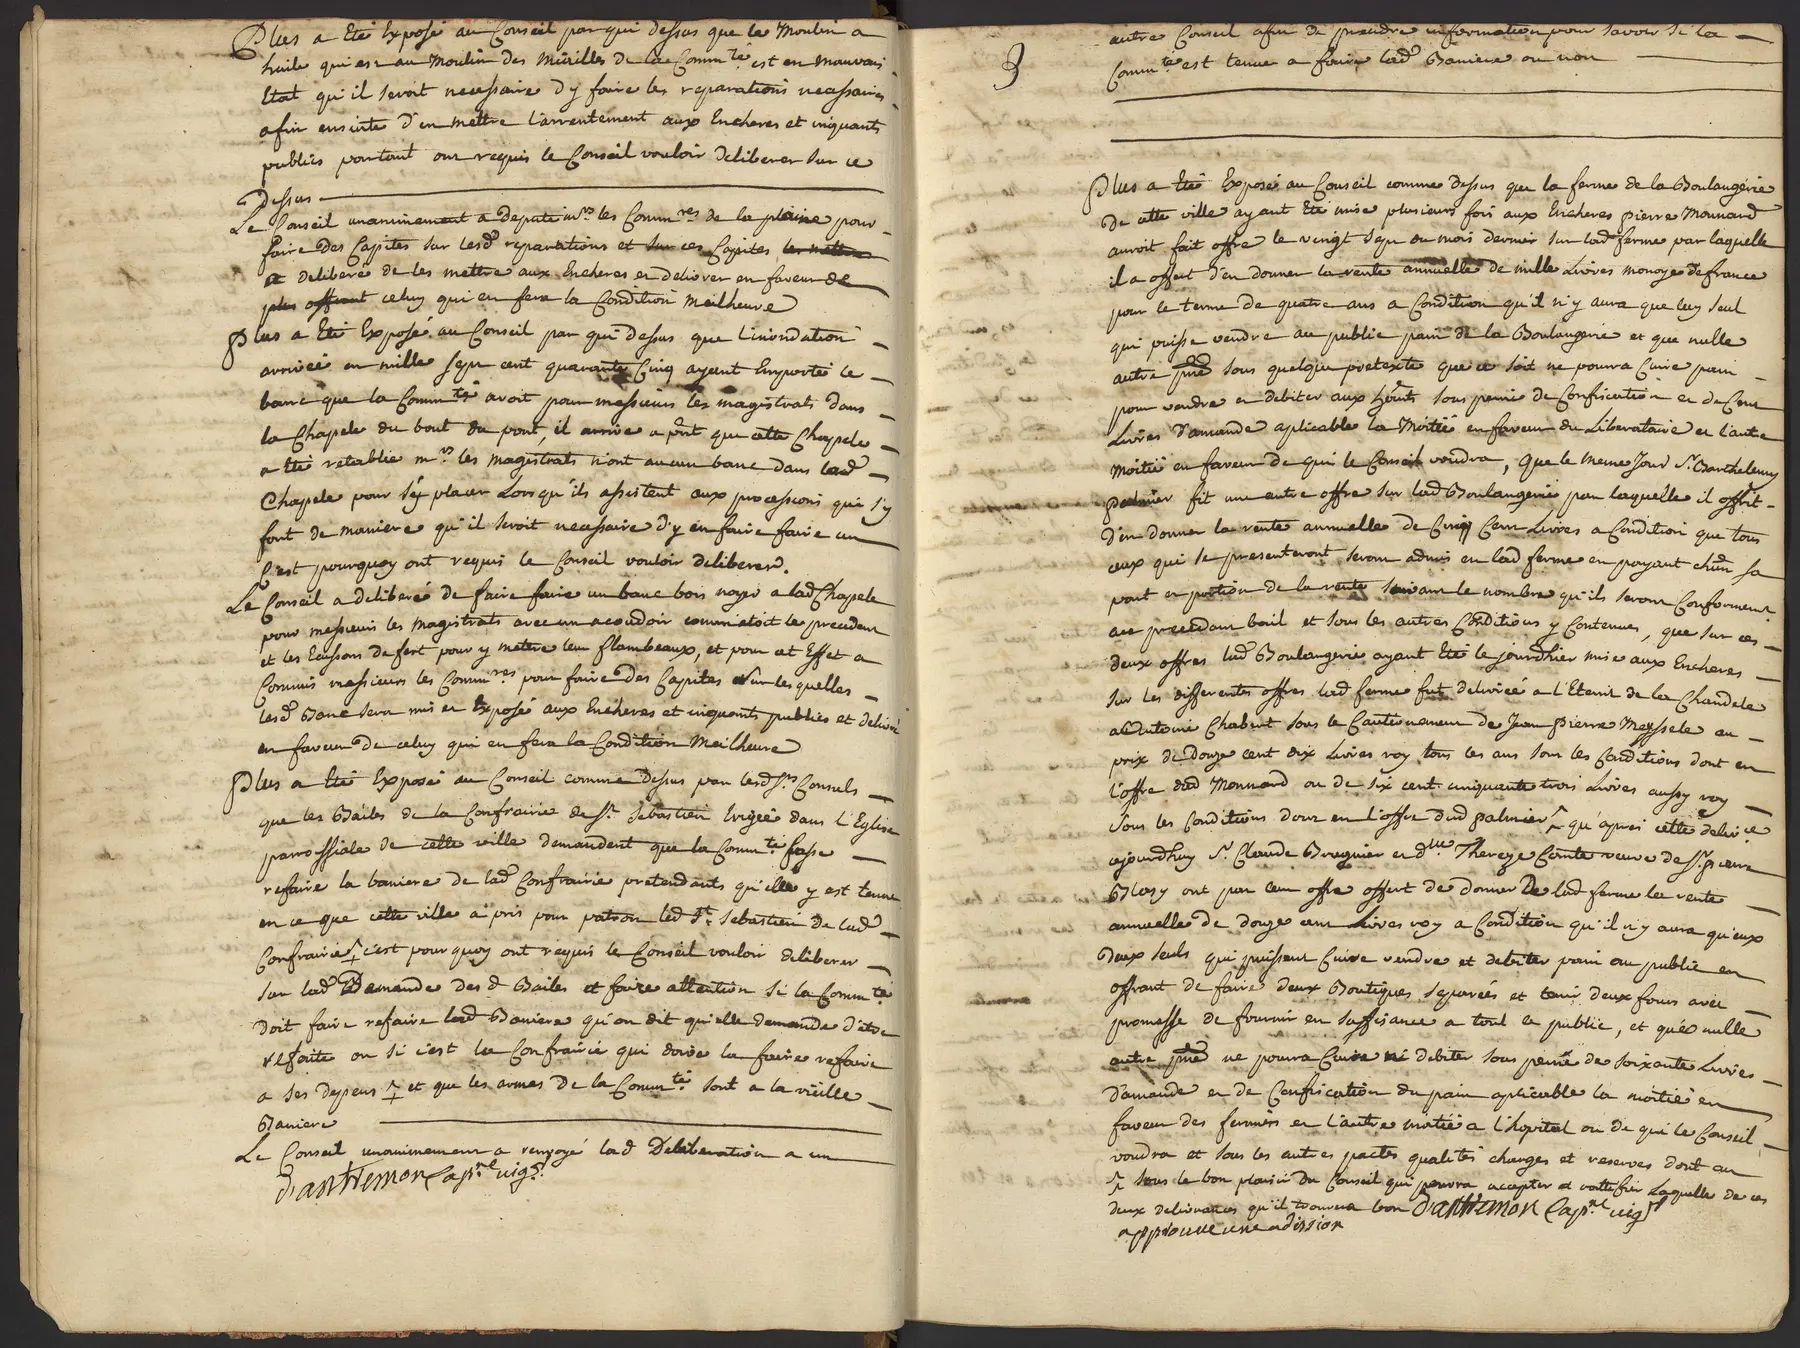 Plus a Eté Exposé au Conseil par qui dessus que le Moulin a
huile qui est au Moulin des Mirilles de la Comm.té est en mauvais
Etat qu'il seroit necessaire d'y faire les reparations necessaires
afin ensuite d'en mettre l'arrentement aux Encheres et inquants
publics partant ont requis le Conseil vouloir deliberer sur ce
Dessus
Le Conseil unanimement a deputé m.rs les Comm.res de la pleine pour
faire des Capites sur lesd reparations et sur ces Capites les mettre
a deliberé de les mettre aux Encheres et delivrer en faveur de
plus offrant celuy qui en fera la Condition meilheure
Plus a Eté Exposé au Conseil par qui dessus que l'inondation
arrivée en mille sept cent quarante Cinq ayant Emporté le
banc que la Comm.té avoit pour messieurs les magistrats dans
la Chapele du bout du pont, il arrive a pñt que cette Chapele
a eté retablie m.rs les magistrats n'ont aucun banc dans lad
Chapele pour s'éy placer Lorsqu'ils assistent aux processions qui s'y
font de maniere qu'il seroit necessaire d'y en faire faire un
C'est pourquoy ont requis le Conseil vouloir deliberer.
Le Conseil a deliberé de faire faire un banc bois noyer a lad Chapele
pour messieurs les magistrats avec un acoudoir comm etoit le precedant
et les Ecussons de fert pour y metre leur flambeaux, et pour cet Effet a
Commis messieurs les Comm.res pour faire des Capites sur lesquelles
lesd Banc sera mis et Exposé aux Encheres et inquants publics et delivré
en faveur de celuy qui en fera la Condition Meilheure
Plus a Eté Exposé au Conseil comme dessus par lesd S.rs Consuls
que les Bailes de la Confrairie de S.t Sebastien Erigée dans l'Eglise
parrossiale de cette ville demandent que la Comm.té fasse
refaire la baniere de lad Confrairie pretendants qu'elle y est tenue
en ce que cette ville a pris pour patron led S.t Sebastien de lad
Confrairie c'est pourquoy ont requis le Conseil vouloir deliberer
sur lad Demande desd Bailes et faire attention si la Comm.té
doit faire refaire lad Baniere qu'on dit qu'elle demande d'etre
refaite ou si c'est la Confrairie qui doive la faire refaire
a ses depens et que les armes de la Comm.té sont a la vieille
Baniere
Le Conseil unanimement a renvoyé lad Deliberation a un
d'anthemon Cap.nel vig.r
3
autre Conseil afin de prendre information pour savoir si la
Comm.té est tenue a faire lad Baniere ou non
Plus a Eté Exposé au Conseil comme dessus que la ferme de la Boulangerie
de cette ville ayant Eté mise plusieurs fois aux Encheres pierre Monnard
auroit fait offre le vingt sept du mois dernier sur lad ferme par laquelle
il a offert d'en donner la rente annuelle de mille Livres monoye de france
pour le terme de quatre ans a Condition qu'il n'y aura que luy seul
qui puisse vendre au public pain de la Boulangerie et que nulle
autre pñe sous quelque pretexte que ce soit ne pourra Cuire pain
pour vendre et debiter aux hñts sous peine de Confiscation et de Cent
Livres d'amande aplicable la Moitié en faveur du Liberataire et l'autre
moitié en faveur de qui le Conseil voudra, Que le meme Jour S.r Barthelemy
palmier fit une autre offre sur lad Boulangerie par laquelle il offrit
d'en donner la rente annuelle de Cinq Cent Livres a Condition que tous
ceux qui se presenteront seront admis en lad ferme en payant chũn sa
part et portion de la rente suivant le nombre qu'ils seront Conformement
au precedant bail et sous les autres Conditions y Contenues, que sur ces
deux offres lad Boulangerie ayant Eté le jourdhier mise aux Encheres
sur les differentes offres lad ferme fut delivrée a l'Eteint de la Chandele
a Antoine Chabert sous le Cautionnement de Jean pierre Meyssele au
prix de Douze cent dix Livres roy tous les ans sous les Conditions dont en
l'offre dud Monnard ou de six cent cinquante trois Livres aussy roy
sous les Conditions dont en l'offre dud palmier qu'apres cette delivce
cejourdhuy S.r Claude Bruguier et d.lle Thereze Comte veuve de S.r pierre
Blasy ont par leur offre offert de donner De lad ferme la rente
annuelle de douze cent Livres roy a Condition qu'il n'y aura qu'eux
Deux seuls qui puissent Cuire vendre et debiter pain au public en
offrant de faire deux Boutiques separées et tenir deux fours avec
promesse de fournir en suffisance a tout le public, et que nulle
autre pñe ne pourra Cuire ni debiter sous peine de soixante Livres
d'amande et de Confiscation du pain aplicable la moitié en
faveur des fermiers et l'autre moitié a l'hopital ou de qui le Conseil
voudra et sous les autres pactes qualités charges et reserves dont au
sous le bon plaisir du Conseil qui pourra accepter et ratiffier Laquelle de ces
deux delivrances qu'il trouvera bon d'anthemon Cap.nel vig.r
approuve une adission